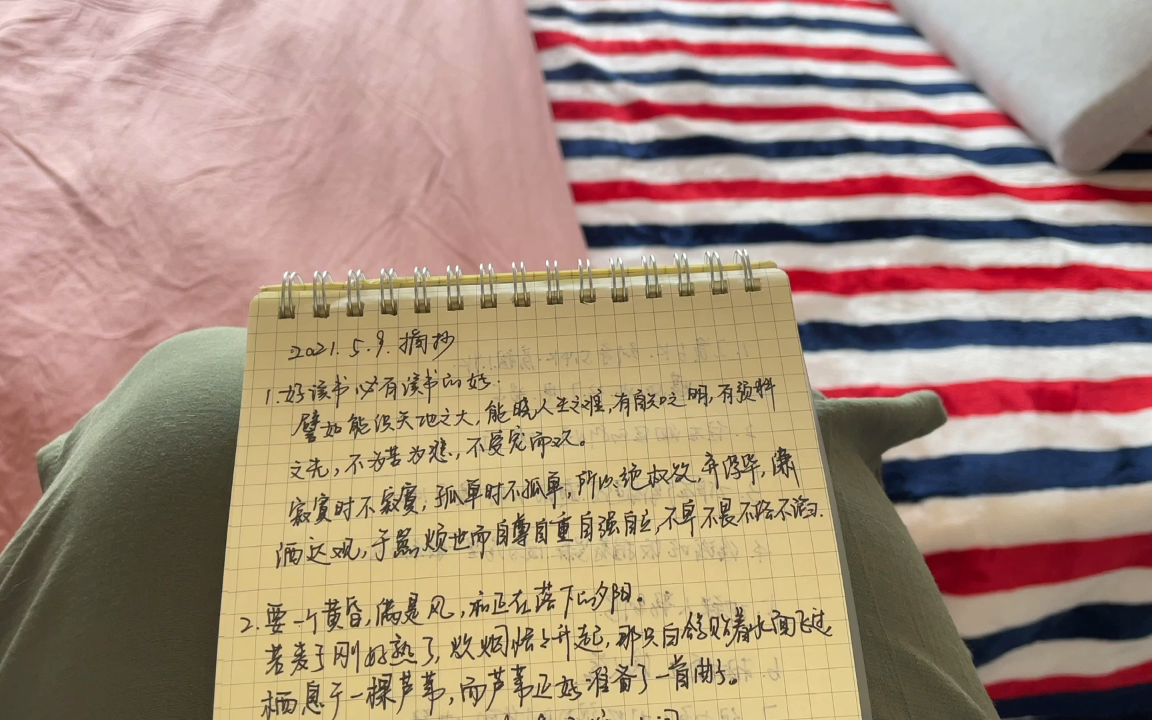 2021.5.9.摘抄
1.好读书必有读书的好.
譬如能识天地之大,能晓人生之难,有自知之明,有预料
之先,不为苦为悲,不受宠而欢。
寂寞时不寂寞,孤单时不孤单,所以绝权欲,弃浮华,潇
洒达观,于嚣烦也而自尊自重自强自立,不卑不畏不俗不谄.
2.要一个黄昏,满是风,和正在落下的夕阳。
若麦子刚好熟了,炊烟悄々升起,那只白鸽贴着水面飞过
栖息于一棵芦苇,而芦苇正好准备了一首曲子。